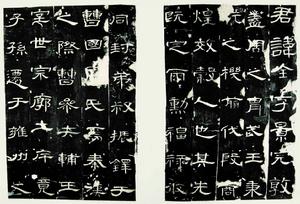 君諱全字景完敦
蓋周之胄武王秉
之機翦伐殷商
煌效穀人也其先
既定爾勳福祿攸
同封弟叔振鐸于
曹國氏焉秦漢
之際曹參夾輔王
室世宗廓土斥竟
子孫遷于雍州之